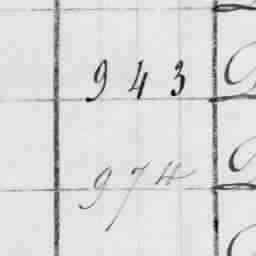 943
974